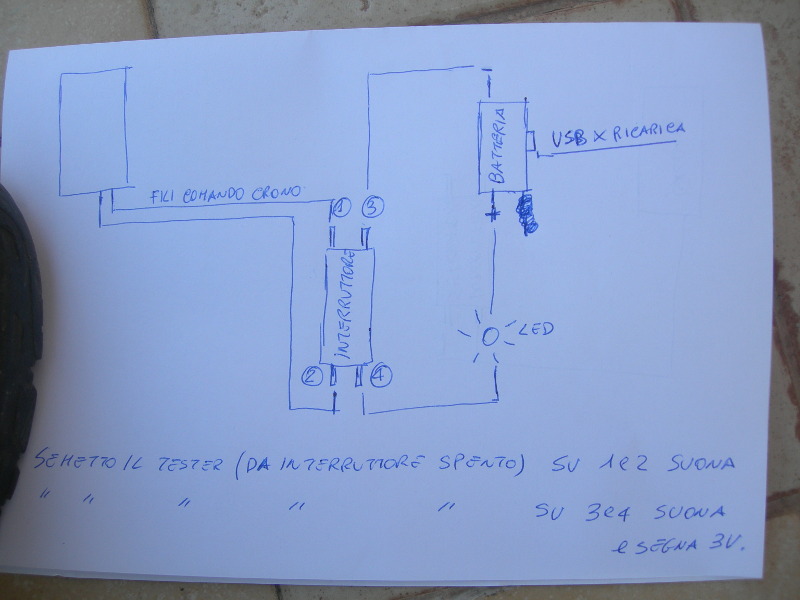 BATTERIA
USB X RICARICA
FILI COMANDO CRONO
1 3
INTERRUTTORE
LED
2 4
SE METTO IL TESTER (DA INTERRUTTORE SPENTO) SU 1e2 SUONA
" " " " " SU 3e4 SUONA
e SEGNA 3V.